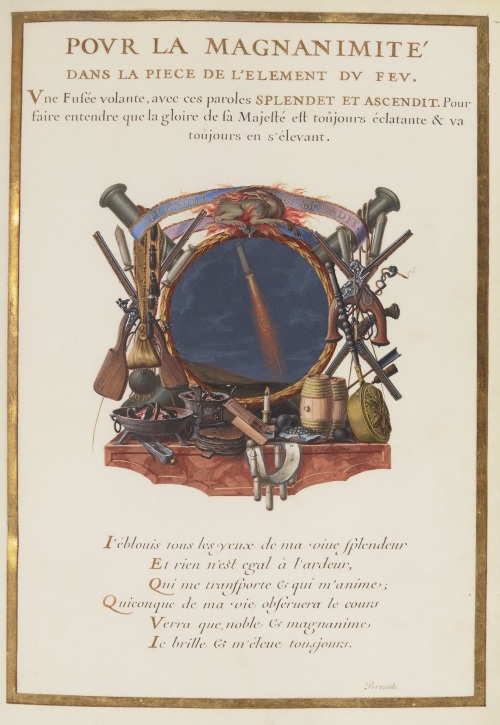 POVR LA MAGNANIMITÉ
DANS LA PIECE DE L'ELEMENT DV FEV.
Vne Fusée volante, avec ces paroles SPLENDET ET ASCENDIT. Pour
faire entendre que la gloire de sa Majesté est toûjours éclatante & va
toûjours en s'élevant.
SPLENDET ASCENDIT
I'éblouis tous les yeux de ma viue splendeur
Et rien n'est egal à l'ardeur,
Qui me transporte & qui m'anime;
Quiconque de ma vie obseruera le cours
Verra que, noble & magnanime,
Ie brille & m'éleue tousjours.
Perrault.